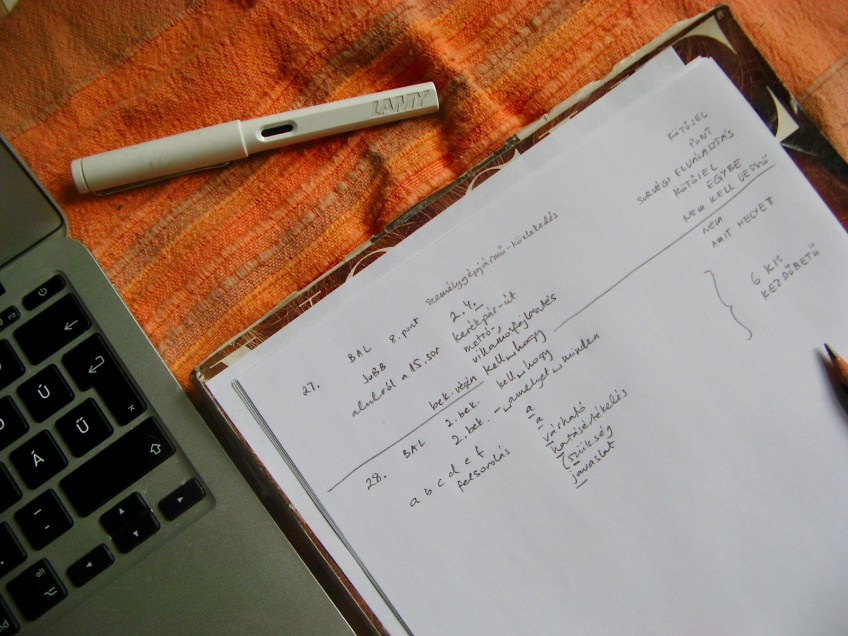 LAMY
személygépjármű-közlekedés KÖTŐJEL
27. BAL 8. pont 2.4. PONT
JOBB kerékpár-út SORVÉGI ELVÁLASZTÁS
alulról a 15. sor metró-, KÖTŐJEL
villamosfejlesztés EGYBE
bek. végén kell hogy NEM KELL VESSZŐ
28. BAL 2. bek. kell hogy NEM
2. bek. – amelyet minden AMIT HELYETT
a b c d e f a
felsorolás a
várható 6 KIS
hatásértékelés KEZDŐBETŰ
szükség
javaslat
Ű
Ú
Á
Ü
alt